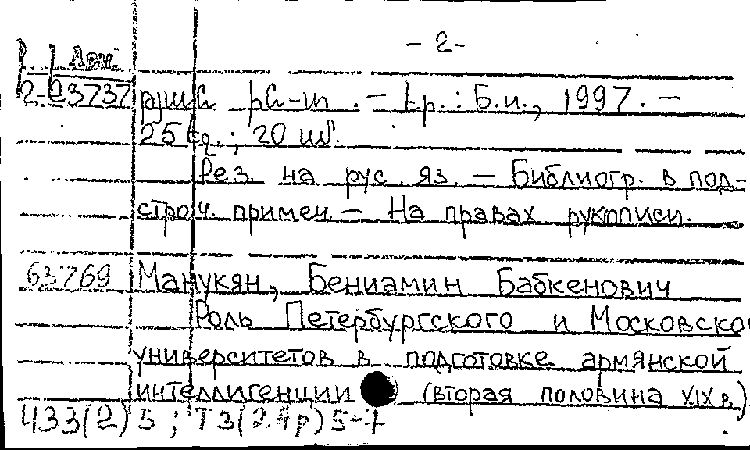 - 2-
2-23737
1997. -
25
Рез. на рус. яз. - Библиогр. в под-
строч. примеч. - На правах рукописи.
63769 Манукян, Бениамин Бабкенович
Роль Петербургского и Московско
университетов в подготовке армянской
интеллигенции (вторая половина XIX в.)
Ч33(2)5; Т3(2Ар)5-7